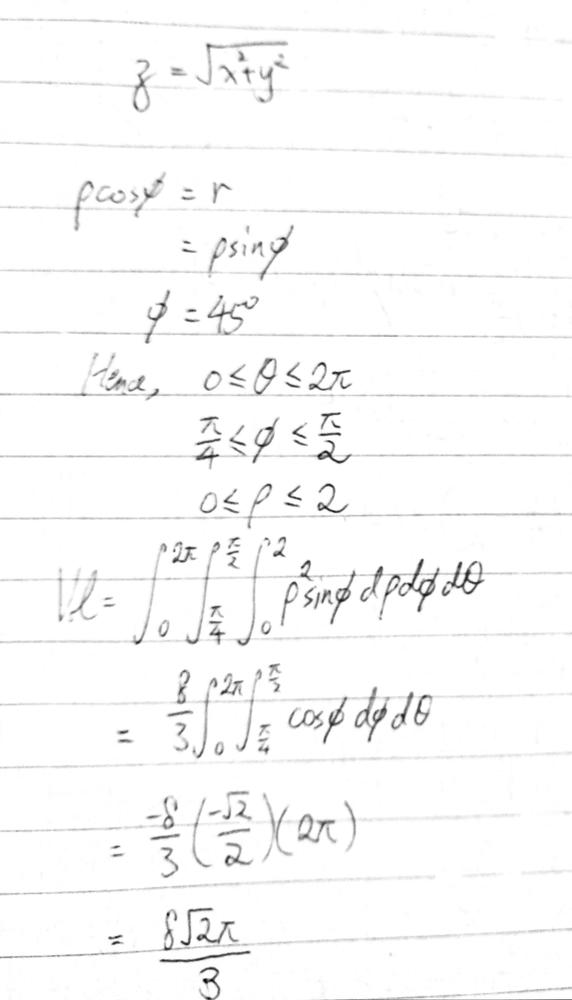 z = √(x²+y²)
ρcosφ = r
= ρsinφ
φ = 45°
Hence, 0 ≤ θ ≤ 2π
π/4 ≤ φ ≤ π/2
0 ≤ ρ ≤ 2
Vol = ∫₀^{2π} ∫_{π/4}^{π/2} ∫₀² ρ² sinφ dρ dφ dθ
= 8/3 ∫₀^{2π} ∫_{π/4}^{π/2} cosφ dφ dθ
= -8/3 (-√2/2)(2π)
= 8√2π/3